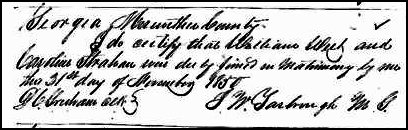 Georgia Meriwether County
I do certify that William West and
Caroline Strahan were duly joined in matrimony by me
this 21st day of November 1850
Clk J W Yarbrough